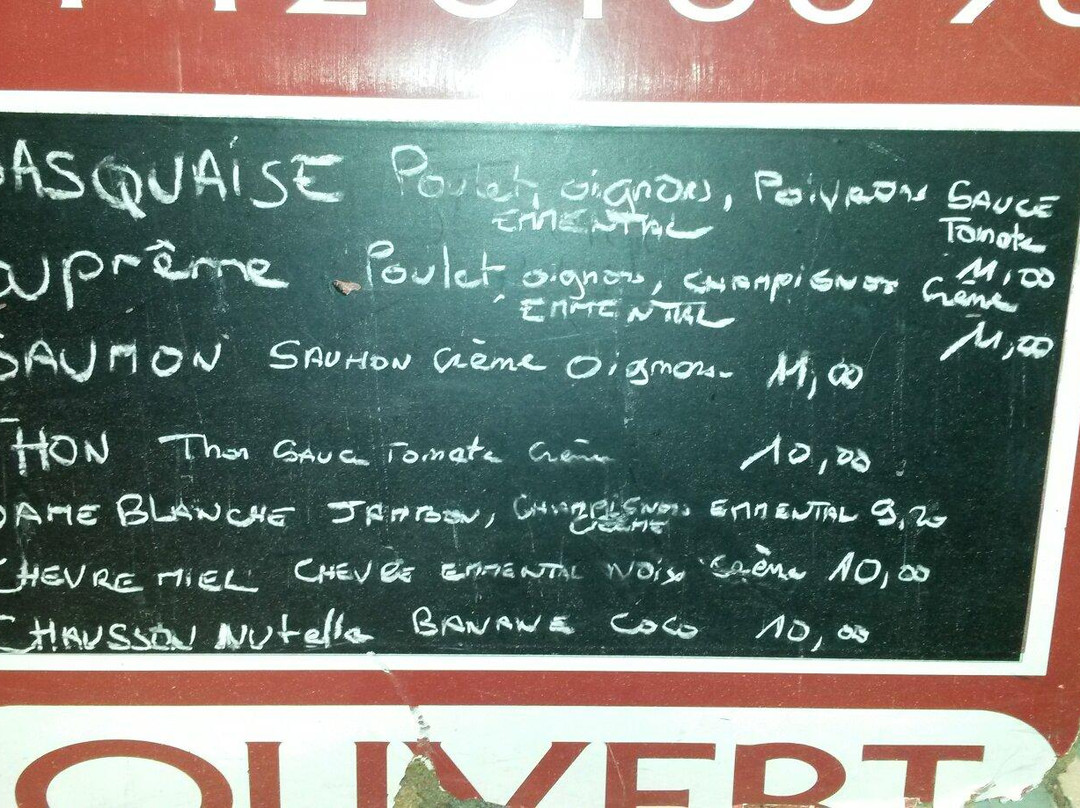 BASQUAISE Poulet, oignons, Poivrons SAUCE
EMMENTAL Tomate
11,00
Suprême Poulet, oignons, CHAMPIGNONS Crème
EMMENTAL
11,00
SAUMON SAUMON Crème Oignons 11,00
THON Thon SAUCE Tomate Crème 10,00
DAME BLANCHE JAMBON, CHAMPIGNONS EMMENTAL 9,20
CRÈME
CHEVRE MIEL CHEVRE EMMENTAL NOIX Crème 10,00
CHAUSSON NUtella BANANE COCO 10,00
OUVERT